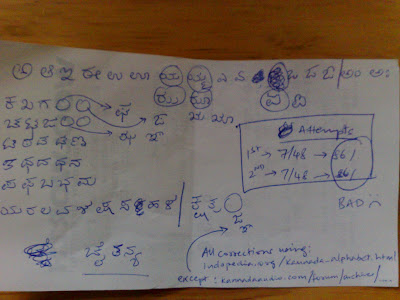 ಅ ಆ ಇ ಈ ಉ ಊ ಎ ಏ ಒ ಓ ಔ / ಅಂ ಅಃ
ಕ ಖ ಗ ಘ
ಚ ಛ ಜ ಝ
ಟ ಠ ಡ ಢ ಣ
ತ ಥ ದ ಧ ನ
ಪ ಫ ಬ ಭ ಮ
ಯ ರ ಲ ವ ಶ ಷ ಸ ಹ ಳ / ಕ್ಷ ತ್ರ
Attempts
1ST → 7/48 →
2ND → 7/48 →
BAD :(
ಚೈತನ್ಯ
All corrections using:
indopedia.org/kannada-alphabet.html
except : kannadaaudio.com/forum/archive/....